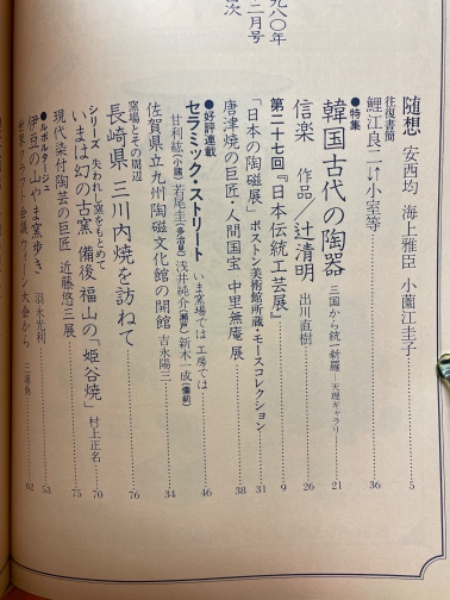 九八〇年
二月号
次
随想 安西均 海上雅臣 小薗江圭子 5
往復書簡
鯉江良二⇄小室等 36
●特集
韓国古代の陶器 三国から統一新羅─天理ギャラリー 21
信楽 作品/辻清明 出川直樹 26
第二十七回『日本伝統工芸展』 9
「日本の陶磁展」ボストン美術館所蔵・モースコレクション 31
唐津焼の巨匠・人間国宝 中里無庵展 38
●好評連載
セラミック・ストリート いま窯場では 工房では 46
甘利紘(小諸) 若尾圭(多治見) 浅井純介(瀬戸) 新木一成(備前)
佐賀県立九州陶磁文化館の開館 吉永陽三 34
窯場とその周辺
長崎県 三川内焼を訪ねて 76
シリーズ 失われた窯をもとめて
いまは幻の古窯 備後 福山の「姫谷焼」 村上正名 70
現代染付陶芸の巨匠 近藤悠三展 75
●ルポルタージュ
伊豆の山やま窯歩き 羽永光利 53
世界クラフト会議ウィーン大会から 三浦 62